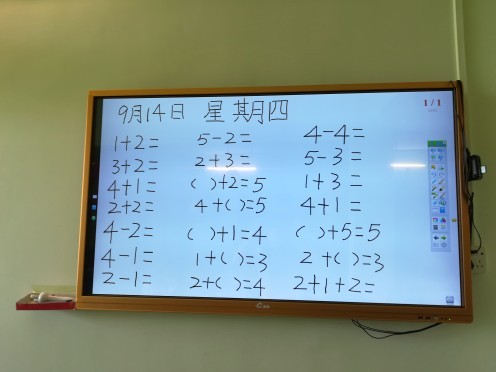 9月14日 星期四
1/1
1+2= 5-2= 4-4=
3+2= 2+3= 5-3=
4+1= ( )+2=5 1+3=
2+2= 4+( )=5 4+1=
4-2= ( )+1=4 ( )+5=5
4-1= 1+( )=3 2+( )=3
2-1= 2+( )=4 2+1+2=